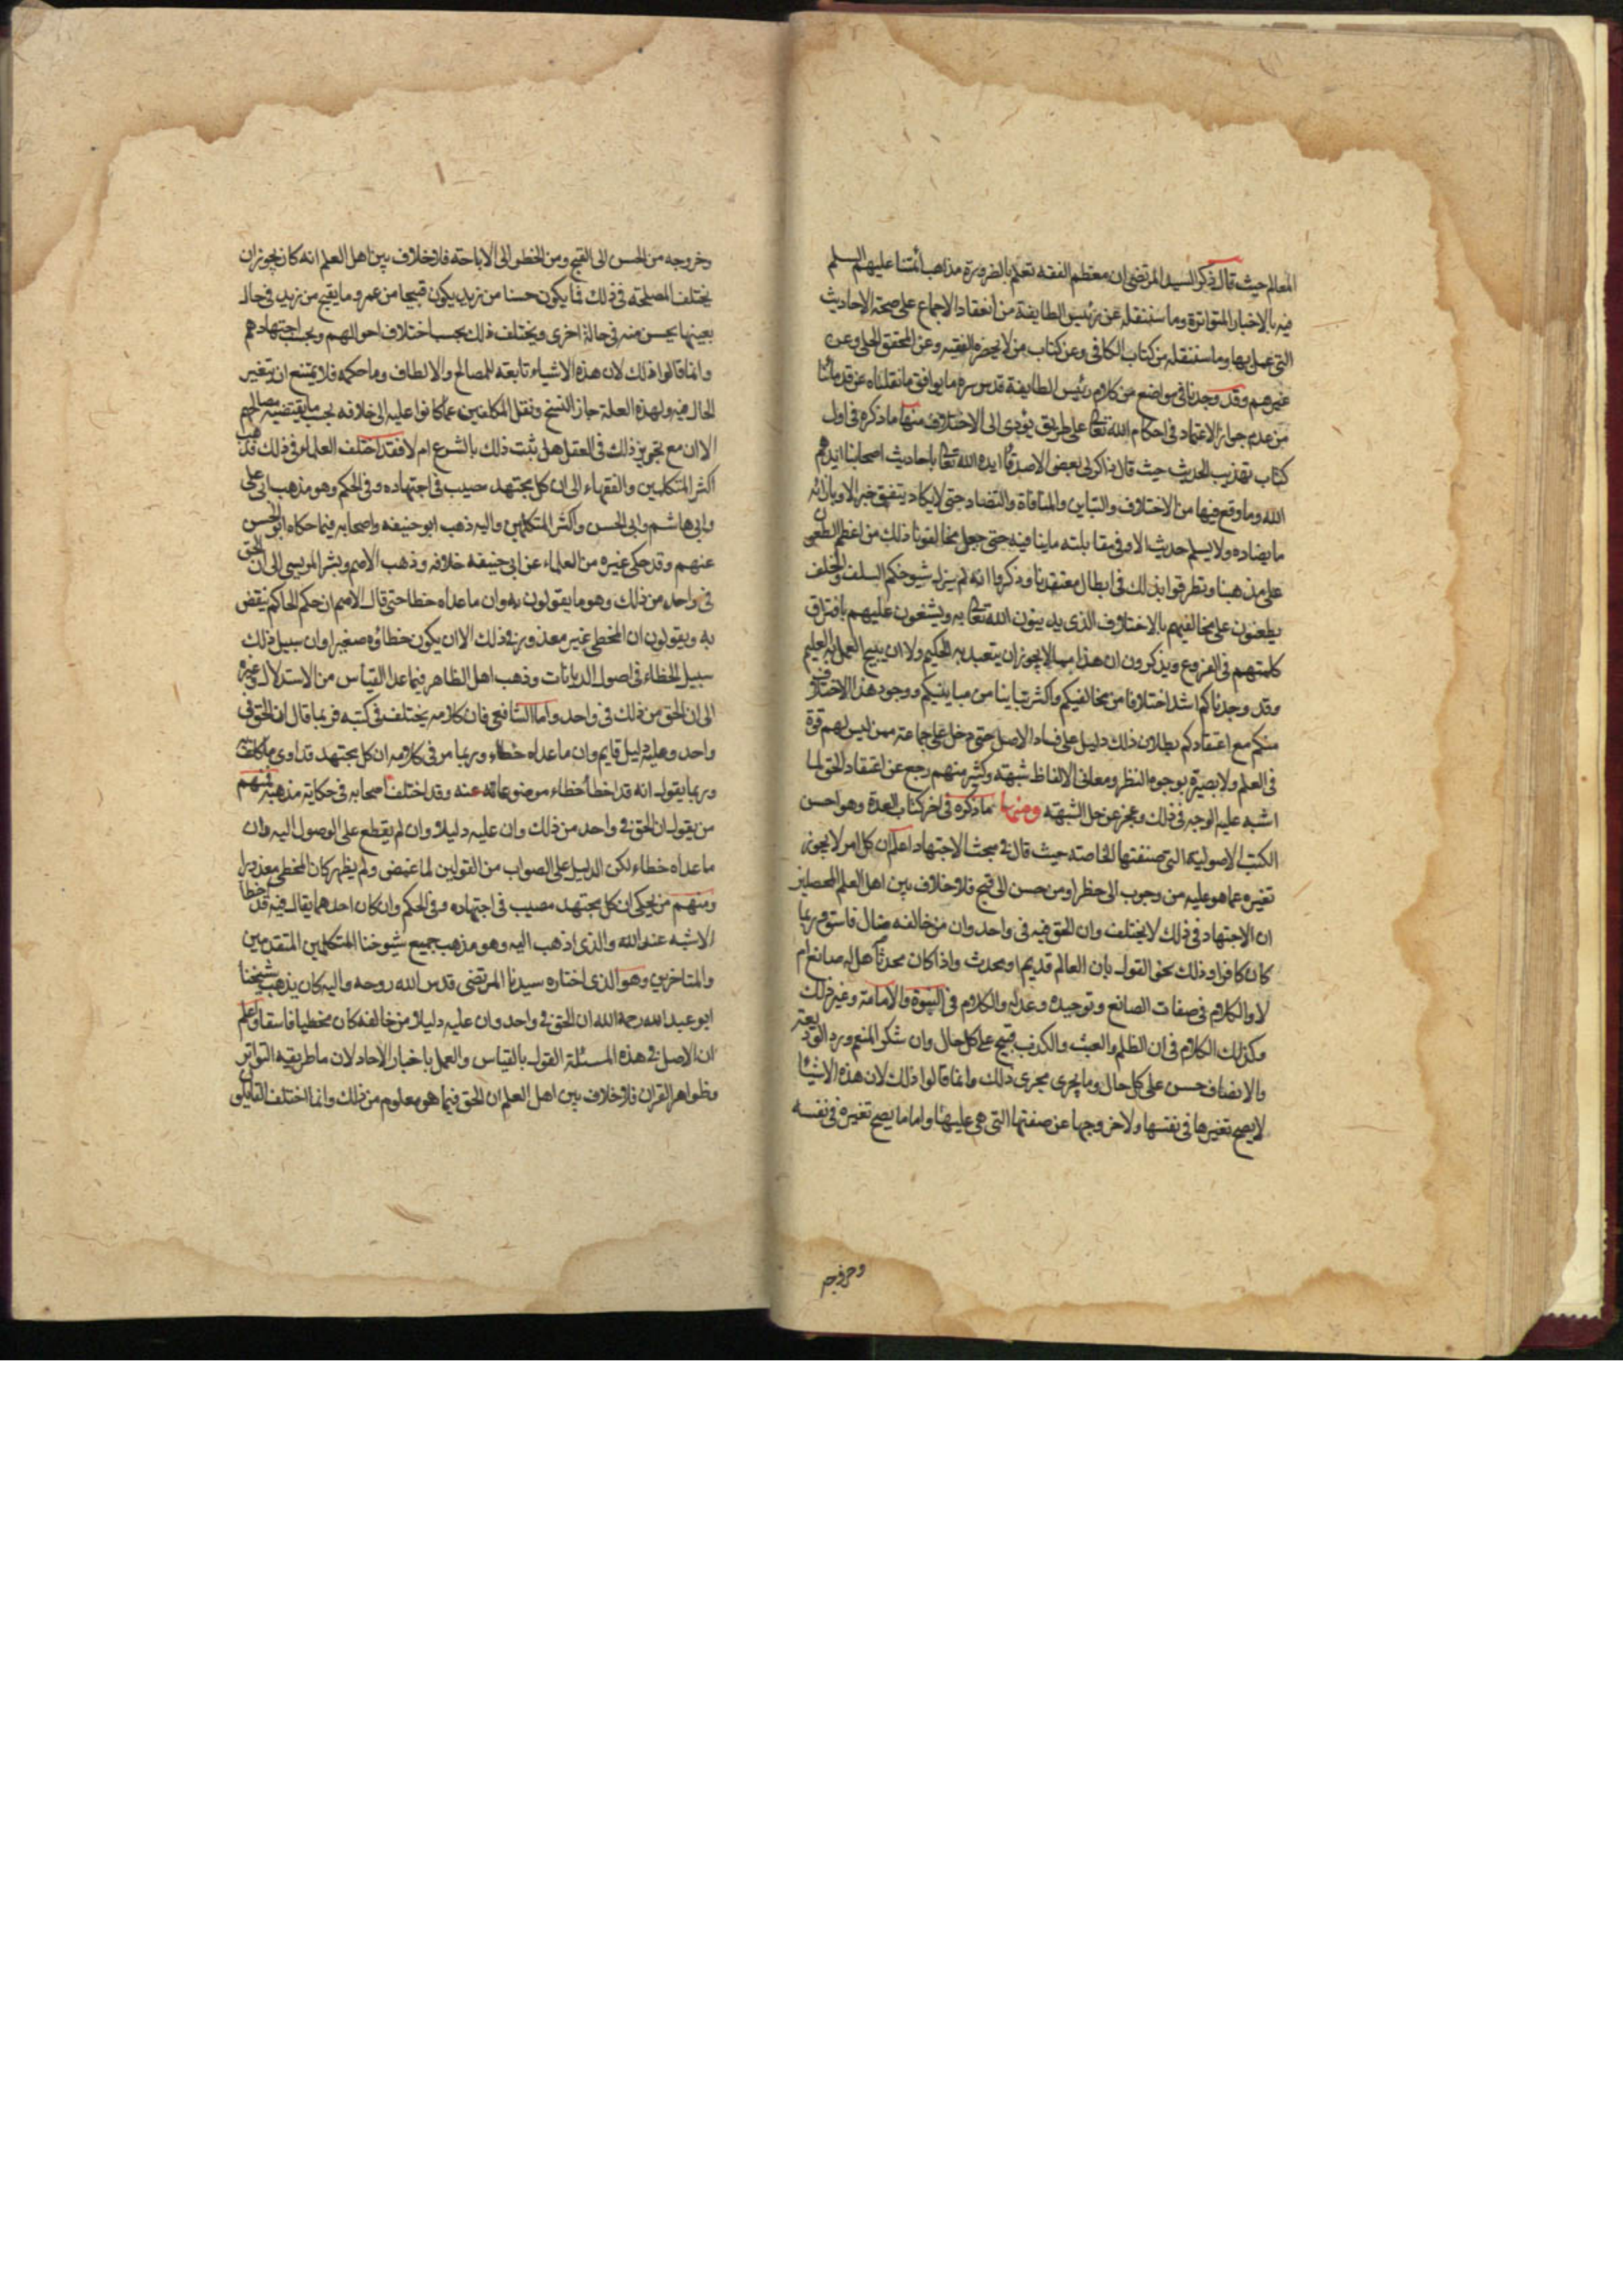 المعالم حيث قال ذكر السيد المرتضى ان معظم الفقه تعلم بالضرورة مذاهب ائمتنا عليهم السلم
فيه بالاخبار المتواترة وما سننقله عن رئيس الطايفة من انعقاد الاجماع على صحة الاحاديث
التى عمل بها وما سننقله من كتاب الكافى وعن كتاب من لا يحضره الفقيه وعن المحقق الحلى وعن
غيرهم وقد وجدنا فى مواضع من كلام رئيس الطايفة قدس سره ما يوافق ما نقلناه عن قدمائنا
من عدم جواز الاعتماد فى احكام الله تعالى على طريق يؤدى الى الاختلاف منها ما ذكره فى اول
كتاب تهذيب الحديث حيث قال ذاكرنى بعض الاصدقاء ايده الله تعالى باحاديث اصحابنا ايدهم
الله وما وقع فيها من الاختلاف والتباين والمنافاة والتضاد حتى لا يكاد يتفق خبر الا وبازائه
ما يضاده ولا يسلم حديث الا وفى مقابلته ما ينافيه حتى جعل مخالفونا ذلك من اعظم الطعون
على مذهبنا وتطرقوا بذلك فى ابطال معتقدنا وذكروا انه لم يزل شيوخكم السلف والخلف
يطعنون على مخالفيهم بالاختلاف الذى يدينون الله تعالى به ويشنعون عليهم بافتراق
كلمتهم فى الفروع ويذكرون ان هذا مما لا يجوز ان يتعبد به الحكيم ولا ان يبيح العمل به العليم
وقد وجدناكم اشد اختلافا من مخالفيكم واكثر تباينا من مباينيكم ووجود هذا الاختلاف
منكم مع اعتقادكم بطلان ذلك دليل على فساد الاصل حتى دخل على جماعة ممن ليس لهم قوة
فى العلم ولا بصيرة بوجوه النظر ومعانى الالفاظ شبهة وكثير منهم رجع عن اعتقاد الحق لما
اشبه عليه الوجه فى ذلك وعجز عن حل الشبهة ومنها ما ذكره فى اخر كتاب العدة وهو احسن
الكتب الاصولية التى صنفتها الخاصة حيث قال فى مبحث الاجتهاد اعلم ان كل امر لا يجوز
تغيره عما هو عليه من وجوب الى حظر او من حسن الى قبح فلا خلاف بين اهل العلم المحصلين
ان الاجتهاد فى ذلك لا يختلف وان الحق فيه فى واحد وان من خالفه ضال فاسق وربما
كان كافرا وذلك نحو القول بان العالم قديم او محدث واذا كان محدثا هل له صانع ام
لا والكلام فى صفات الصانع وتوحيده وعدله والكلام فى النبوة والامامة وغير ذلك
وكذلك الكلام فى ان الظلم والعبث والكذب قبيح على كل حال وان شكر المنعم ورد الوديعة
والانصاف حسن على كل حال وما يجرى مجرى ذلك وانما قالوا ذلك لان هذه الاشياء
لا يصح تغيرها فى نفسها ولا خروجها عن صفتها التى هى عليها واما ما يصح تغيره فى نفسه
وخروجه
وخروجه من الحسن الى القبح ومن الحظر الى الاباحة فلا خلاف بين اهل العلم انه كان يجوز ان
يختلف المصلحة فى ذلك فما يكون حسنا من زيد يكون قبيحا من عمرو وما يقبح من زيد فى حال
بعينها يحسن منه فى حالة اخرى ويختلف ذلك بحسب اختلاف احوالهم وبحسب اجتهادهم
وانما قالوا ذلك لان هذه الاشياء تابعة للمصالح والالطاف وما حكمه فلا يمتنع ان يتغير
الحال فيه ولهذه العلة جاز النسخ ونقل المكلفين عما كانوا عليه الى خلافه بحسب ما يقتضيه مصالحهم
الا ان مع تجويز ذلك فى العقل هل يثبت ذلك بالشرع ام لا فقد اختلف العلماء فى ذلك فذهب
اكثر المتكلمين والفقهاء الى ان كل مجتهد مصيب فى اجتهاده وفى الحكم وهو مذهب ابى على
وابى هاشم وابى الحسن واكثر المتكلمين واليه ذهب ابو حنيفه واصحابه فيما حكاه ابو الحسن
عنهم وقد حكى غيره من العلماء عن ابى حنيفه خلافه وذهب الاصم وبشر المريسى الى ان الحق
فى واحد من ذلك وهو ما يقولون به وان ما عداه خطا حتى قال الاصم ان حكم الحاكم ينقض
به ويقولون ان المخطى غير معذور فى ذلك الا ان يكون خطاؤه صغيرا وان سبيل ذلك
سبيل الخطاء فى اصول الديانات وذهب اهل الظاهر فيما عدا القياس من الاستدلال وغيره
الى ان الحق من ذلك فى واحد واما الشافعى فان كلامه يختلف فى كتبه فربما قال ان الحق فى
واحد وعليه دليل قايم وان ما عداه خطاء وربما مر فى كلامه ان كل مجتهد قد ادى ما كلف
وربما يقول انه قد اخطا خطاء موضوعا عنه وقد اختلف اصحابه فى حكاية مذهبه فمنهم
من يقول ان الحق فى واحد من ذلك وان عليه دليلا وان لم يقطع على الوصول اليه وان
ما عداه خطاء لكن الدليل على الصواب من القولين لما غمض ولم يظهر كان المخطى معذورا
ومنهم من يحكى ان كل مجتهد مصيب فى اجتهاده وفى الحكم وان كان احدهما يقال فيه قد اخطا
الاشبه عند الله والذى اذهب اليه وهو مذهب جميع شيوخنا المتكلمين المتقدمين
والمتاخرين وهو الذى اختاره سيدنا المرتضى قدس الله روحه واليه كان يذهب شيخنا
ابو عبد الله رحمه الله ان الحق فى واحد وان عليه دليلا من خالفه كان مخطيا فاسقا واعلم
ان الاصل فى هذه المسئلة القول بالقياس والعمل باخبار الاحاد لان ما طريقه التواتر
وظواهر القران فلا خلاف بين اهل العلم ان الحق فيما هو معلوم من ذلك وانما اختلف القايلون